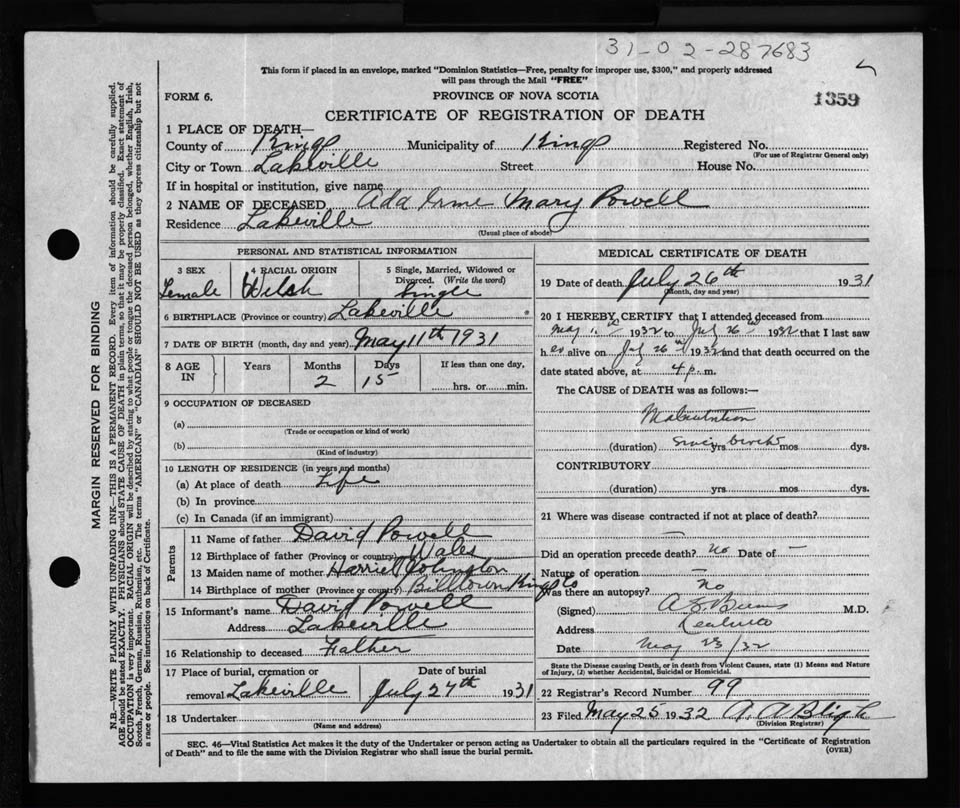 31-02-287683
This form if placed in an envelope, marked "Dominion Statistics—Free, penalty for improper use, $300," and properly addressed
will pass through the Mail "FREE"
FORM 6.
PROVINCE OF NOVA SCOTIA
1359
CERTIFICATE OF REGISTRATION OF DEATH
1 PLACE OF DEATH—
County of Kings Municipality of Kings Registered No.
(For use of Registrar General only)
City or Town Lakeville Street House No.
If in hospital or institution, give name
2 NAME OF DECEASED Ada Irme Mary Powell
Residence Lakeville
(Usual place of abode)
PERSONAL AND STATISTICAL INFORMATION
3 SEX Female
4 RACIAL ORIGIN Welsh
5 Single, Married, Widowed or Divorced. (Write the word) Single
6 BIRTHPLACE (Province or country) Lakeville
7 DATE OF BIRTH (month, day and year) May 11th 1931
8 AGE IN Years Months 2 Days 15 If less than one day, hrs. or min.
9 OCCUPATION OF DECEASED
(a)
(Trade or occupation or kind of work)
(b)
(Kind of industry)
10 LENGTH OF RESIDENCE (in years and months)
(a) At place of death Life
(b) In province
(c) In Canada (if an immigrant)
Parents
11 Name of father David Powell
12 Birthplace of father (Province or country) Wales
13 Maiden name of mother Harriet Johnston
14 Birthplace of mother (Province or country) Billtown Kings Co
15 Informant's name David Powell
Address Lakeville
16 Relationship to deceased Father
17 Place of burial, cremation or removal Lakeville Date of burial July 27th 1931
18 Undertaker
(Name and address)
MEDICAL CERTIFICATE OF DEATH
19 Date of death July 26th 1931
(Month, day and year)
20 I HEREBY CERTIFY that I attended deceased from
May 1932 to July 26 1932 that I last saw
her alive on July 26 1932 and that death occurred on the
date stated above, at 4 p. m.
The CAUSE of DEATH was as follows:—
Malnutrition
(duration) since birth yrs mos dys.
CONTRIBUTORY
(duration) yrs mos dys.
21 Where was disease contracted if not at place of death?
—
Did an operation precede death? no Date of —
Nature of operation —
Was there an autopsy? no
(Signed) M.D.
Address
Date May 23/32
State the Disease causing Death, or in death from Violent Causes, state (1) Means and Nature
of Injury, (2) whether Accidental, Suicidal or Homicidal.
22 Registrar's Record Number 99
23 Filed May 25 1932 A. A Bligh
(Division Registrar)
SEC. 46—Vital Statistics Act makes it the duty of the Undertaker or person acting as Undertaker to obtain all the particulars required in the "Certificate of Registration
of Death" and to file the same with the Division Registrar who shall issue the burial permit.
(OVER)
MARGIN RESERVED FOR BINDING
N.B.—WRITE PLAINLY WITH UNFADING INK—THIS IS A PERMANENT RECORD. Every item of information should be carefully supplied.
AGE should be stated EXACTLY. PHYSICIANS should STATE CAUSE OF DEATH in plain terms, so that it may be properly classified. Exact statement of
OCCUPATION is very important. RACIAL ORIGIN will be described by stating to what people or tongue the deceased person belonged, whether English, Irish,
Scotch, French, German, Russian, Ruthenian, etc. The terms "AMERICAN" or "CANADIAN" SHOULD NOT BE USED as they express citizenship but not
a race or people. See instructions on back of Certificate.